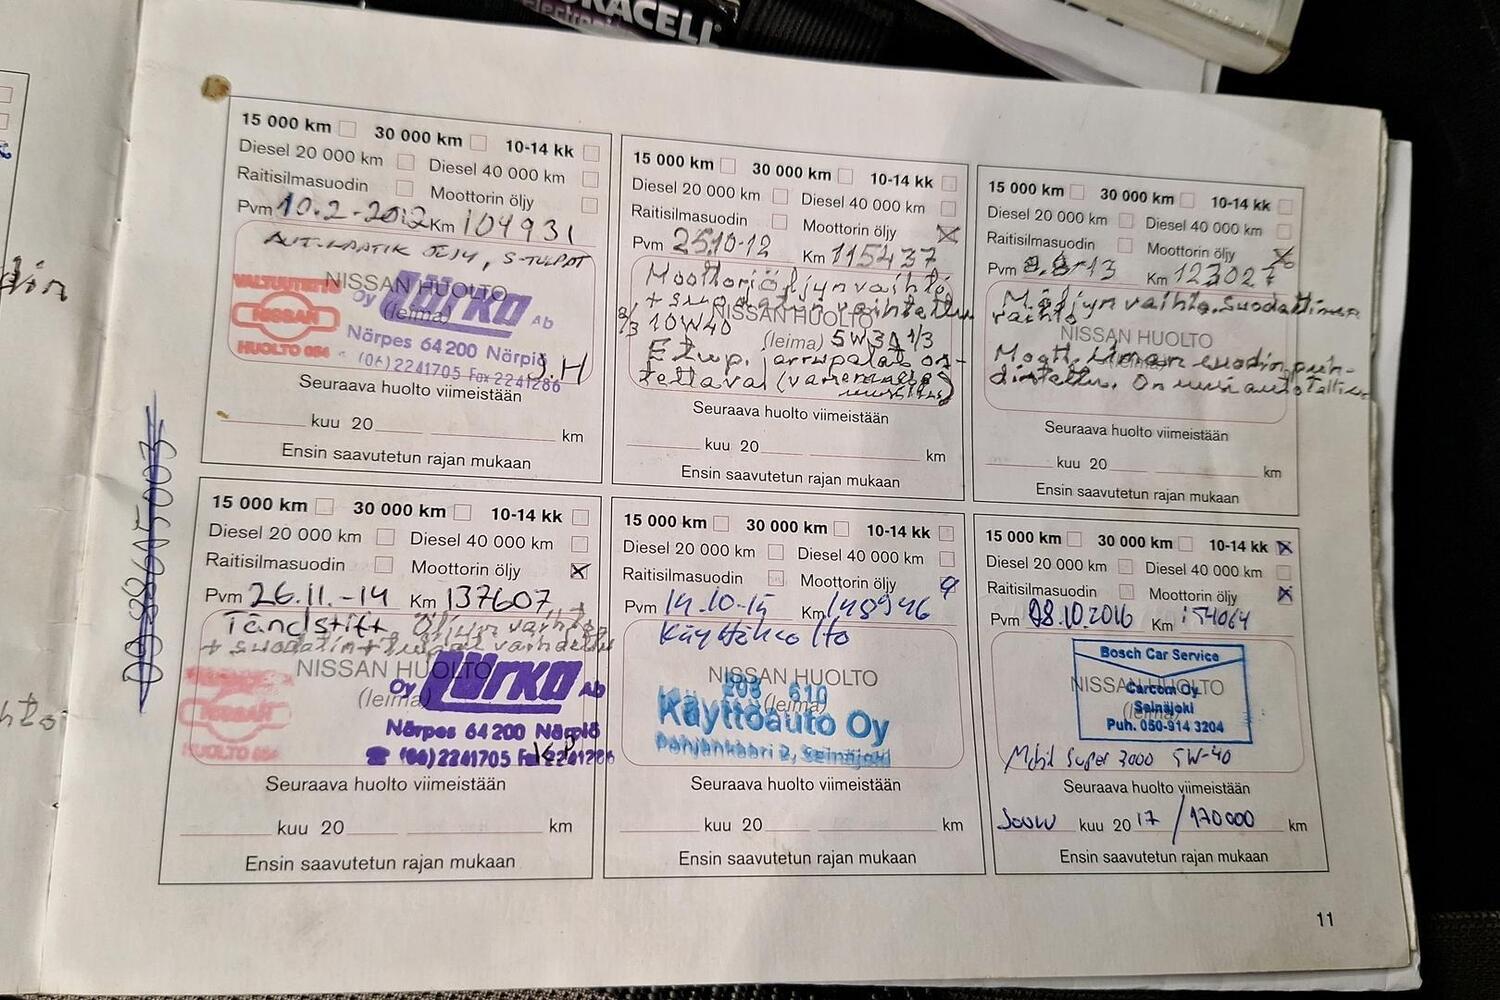 RACELL
15 000 km 30 000 km 10-14 kk
Diesel 20 000 km Diesel 40 000 km
Raitisilmasuodin Moottorin öljy
Pvm 10.2-2012 Km 104931
NISSAN HUOLTO
(leima)
VALTUUTETTU
NISSAN
HUOLTO 084
Oy Lürka Ab
Närpes 64200 Närpiö
(06) 2241705 Fax 2241286
J.H
Seuraava huolto viimeistään
kuu 20 km
Ensin saavutetun rajan mukaan
15 000 km 30 000 km 10-14 kk
Diesel 20 000 km Diesel 40 000 km
Raitisilmasuodin Moottorin öljy
Pvm 25.10-12 Km 115437
Moottoriöljynvaihto,
+ suodatin vaihdettu
2/3 10W40 5W30 1/3
NISSAN HUOLTO
(leima)
Etup. jarrupalat on
Seuraava huolto viimeistään
kuu 20 km
Ensin saavutetun rajan mukaan
15 000 km 30 000 km 10-14 kk
Diesel 20 000 km Diesel 40 000 km
Raitisilmasuodin Moottorin öljy
Pvm 13 Km 123027
M.öljyn vaihto, suodattimen
vaihto
NISSAN HUOLTO
(leima)
Moott. ilman suodin puh-
distettu. On uusi
Seuraava huolto viimeistään
kuu 20 km
Ensin saavutetun rajan mukaan
15 000 km 30 000 km 10-14 kk
Diesel 20 000 km Diesel 40 000 km
Raitisilmasuodin Moottorin öljy
Pvm 26.11.-14 Km 137607
Tändstift Öljyn vaihto
+ suodatin + tulpat vaihdettu
NISSAN HUOLTO
(leima)
NISSAN
HUOLTO 084
Oy Lürka Ab
Närpes 64200 Närpiö
(06) 2241705 Fax 2241286
Seuraava huolto viimeistään
kuu 20 km
Ensin saavutetun rajan mukaan
15 000 km 30 000 km 10-14 kk
Diesel 20 000 km Diesel 40 000 km
Raitisilmasuodin Moottorin öljy
Pvm 14.10-15 Km 148946
Käyttöhuolto
NISSAN HUOLTO
(leima)
Käyttöauto Oy
Pohjankaari 2, Seinäjoki
Seuraava huolto viimeistään
kuu 20 km
Ensin saavutetun rajan mukaan
15 000 km 30 000 km 10-14 kk
Diesel 20 000 km Diesel 40 000 km
Raitisilmasuodin Moottorin öljy
Pvm 08.10.2016 Km 154064
NISSAN HUOLTO
(leima)
Bosch Car Service
Carcom Oy
Seinäjoki
Puh. 050-914 3204
Mobil Super 3000 5W-40
Seuraava huolto viimeistään
kuu 20 17 / 170000 km
Ensin saavutetun rajan mukaan
11